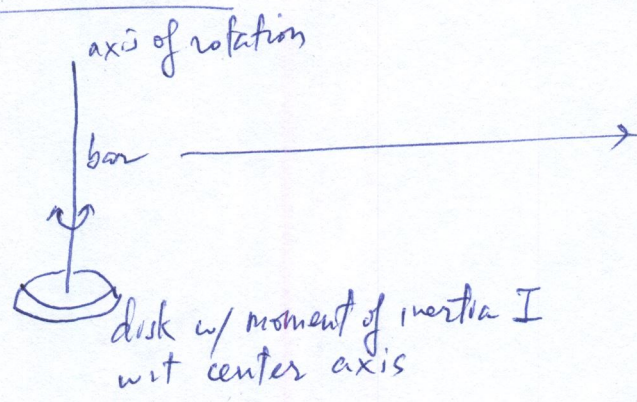 axis of rotation
bar
disk w/ moment of inertia I
wrt center axis